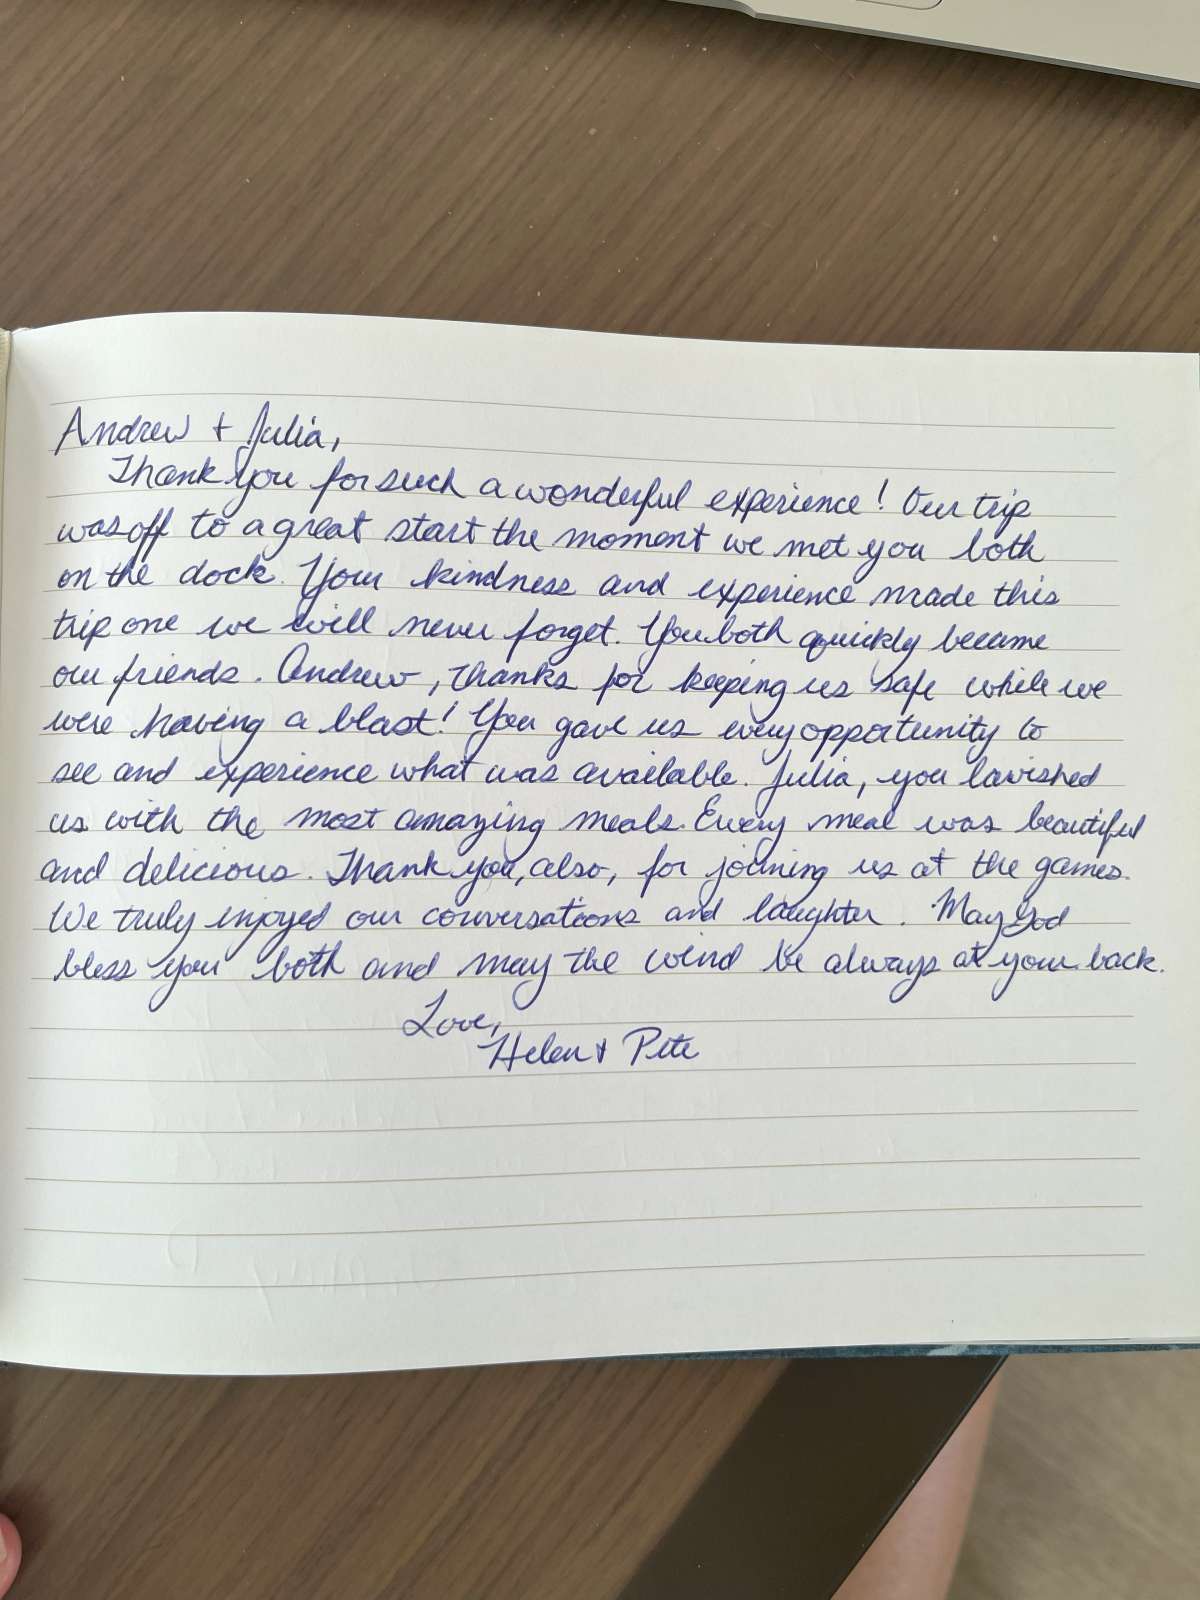 Andrew + Julia,
Thank you for such a wonderful experience! Our trip
was off to a great start the moment we met you both
on the dock. Your kindness and experience made this
trip one we will never forget. You both quickly became
our friends. Andrew, thanks for keeping us safe while we
were having a blast! You gave us every opportunity to
see and experience what was available. Julia, you lavished
us with the most amazing meals. Every meal was beautiful
and delicious. Thank you, also, for joining us at the games.
We truly enjoyed our conversations and laughter. May God
bless you both and may the wind be always at your back.
Love,
Helen + Pete